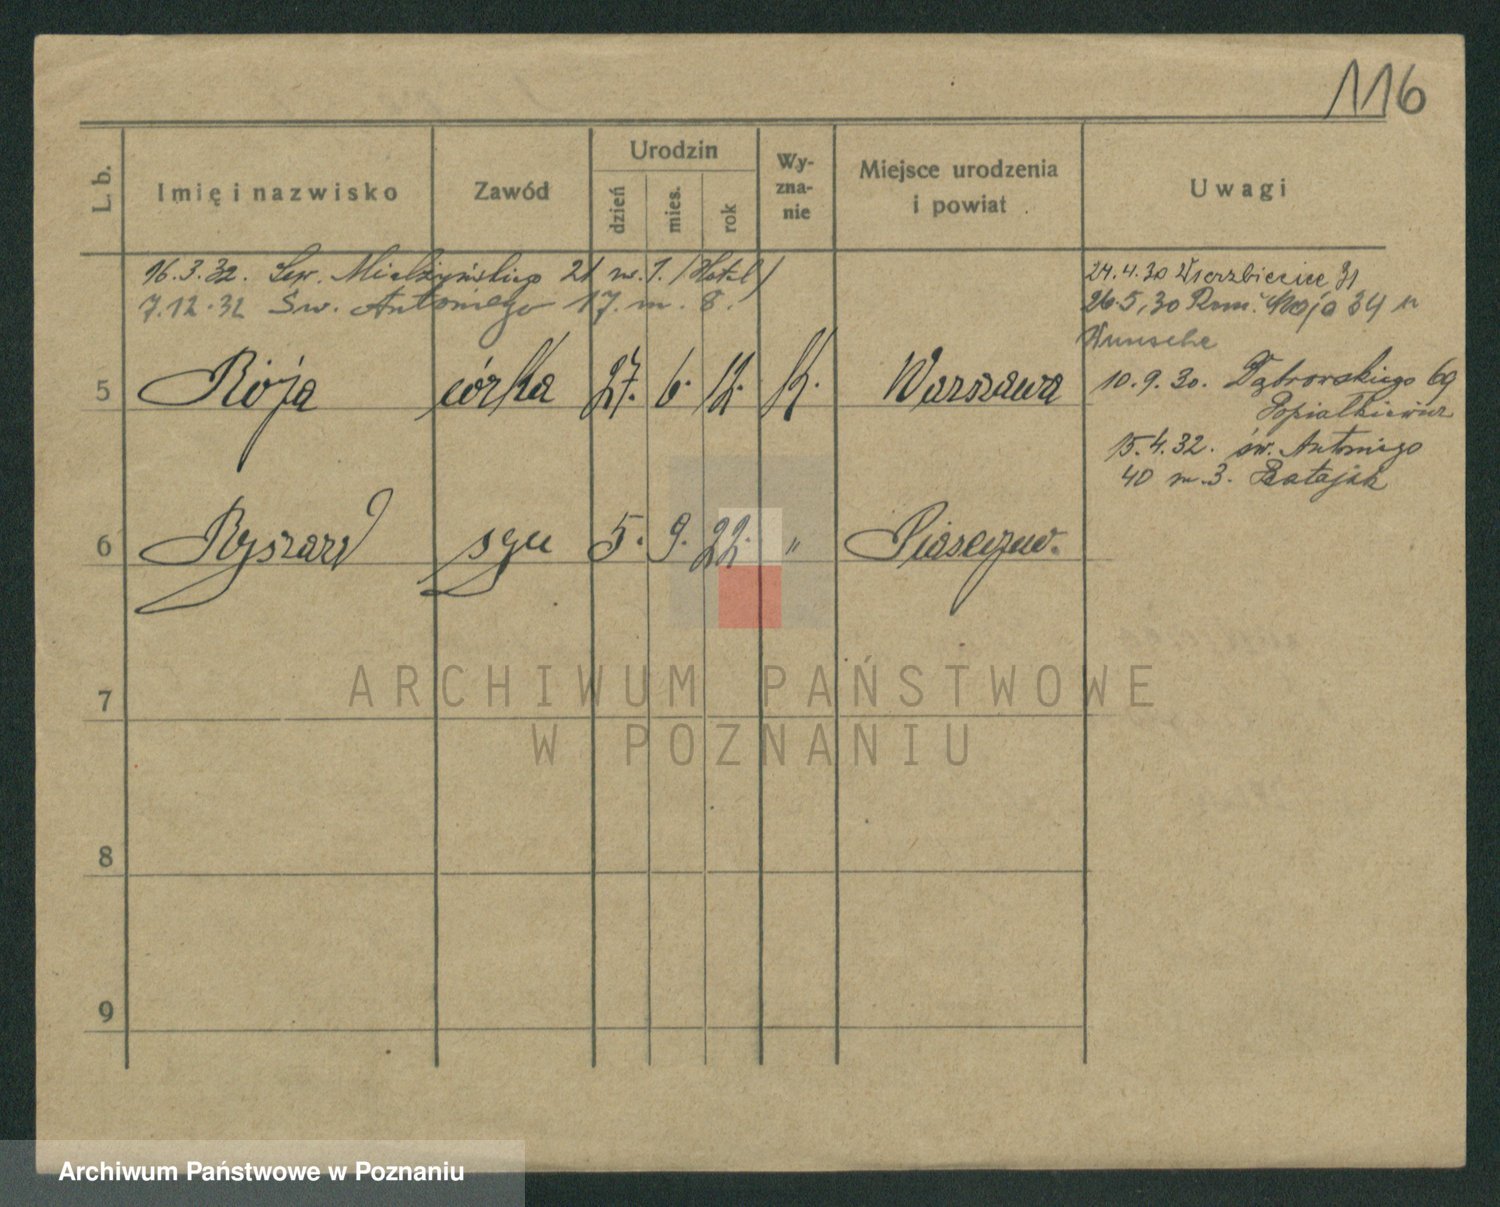 116
L. b. Imię i nazwisko Zawód Urodzin dzień mies. rok Wy-zna-nie Miejsce urodzenia i powiat Uwagi
16.3.32. Sew. Mielżyńskiego 21 m. 1. (Hotel)
7.12.32 Św. Antoniego 17. m. 8.
24.4.30 Wierzbięcice 31
26.5.30 Rom. Maja 34
Wunsche
5 Rója córka 27. 6. 12. K. Warszawa
10.9.30. Dąbrowskiego 69
15.4.32. św. Antoniego
40 m. 3. Ratajak
6 Ryszard syn 5. 9. 22. " Piaseczno.
7
8
9
ARCHIWUM PAŃSTWOWE
W POZNANIU
Archiwum Państwowe w Poznaniu